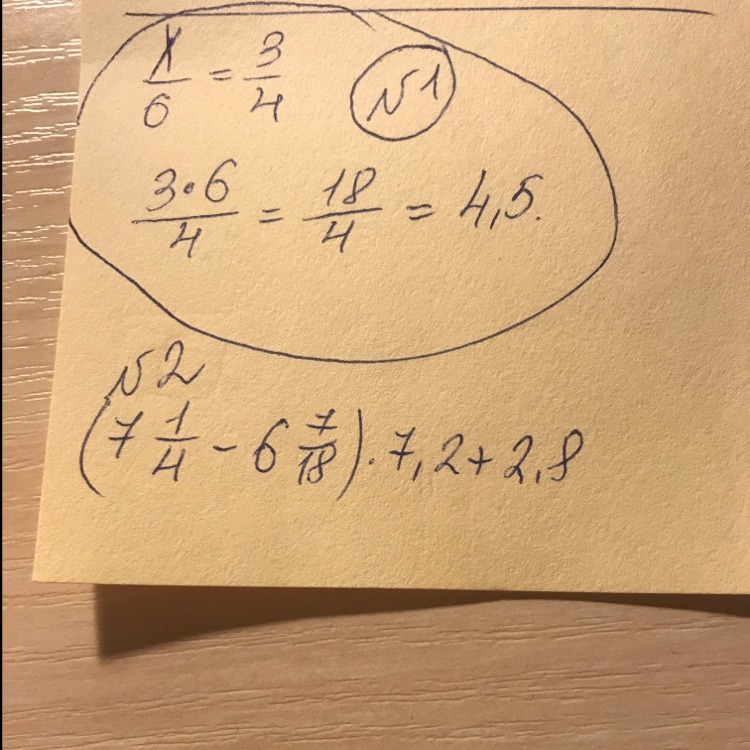 x/6 = 3/4 №1
3·6/4 = 18/4 = 4,5.
№2
(7 1/4 - 6 7/18)·7,2+2,8